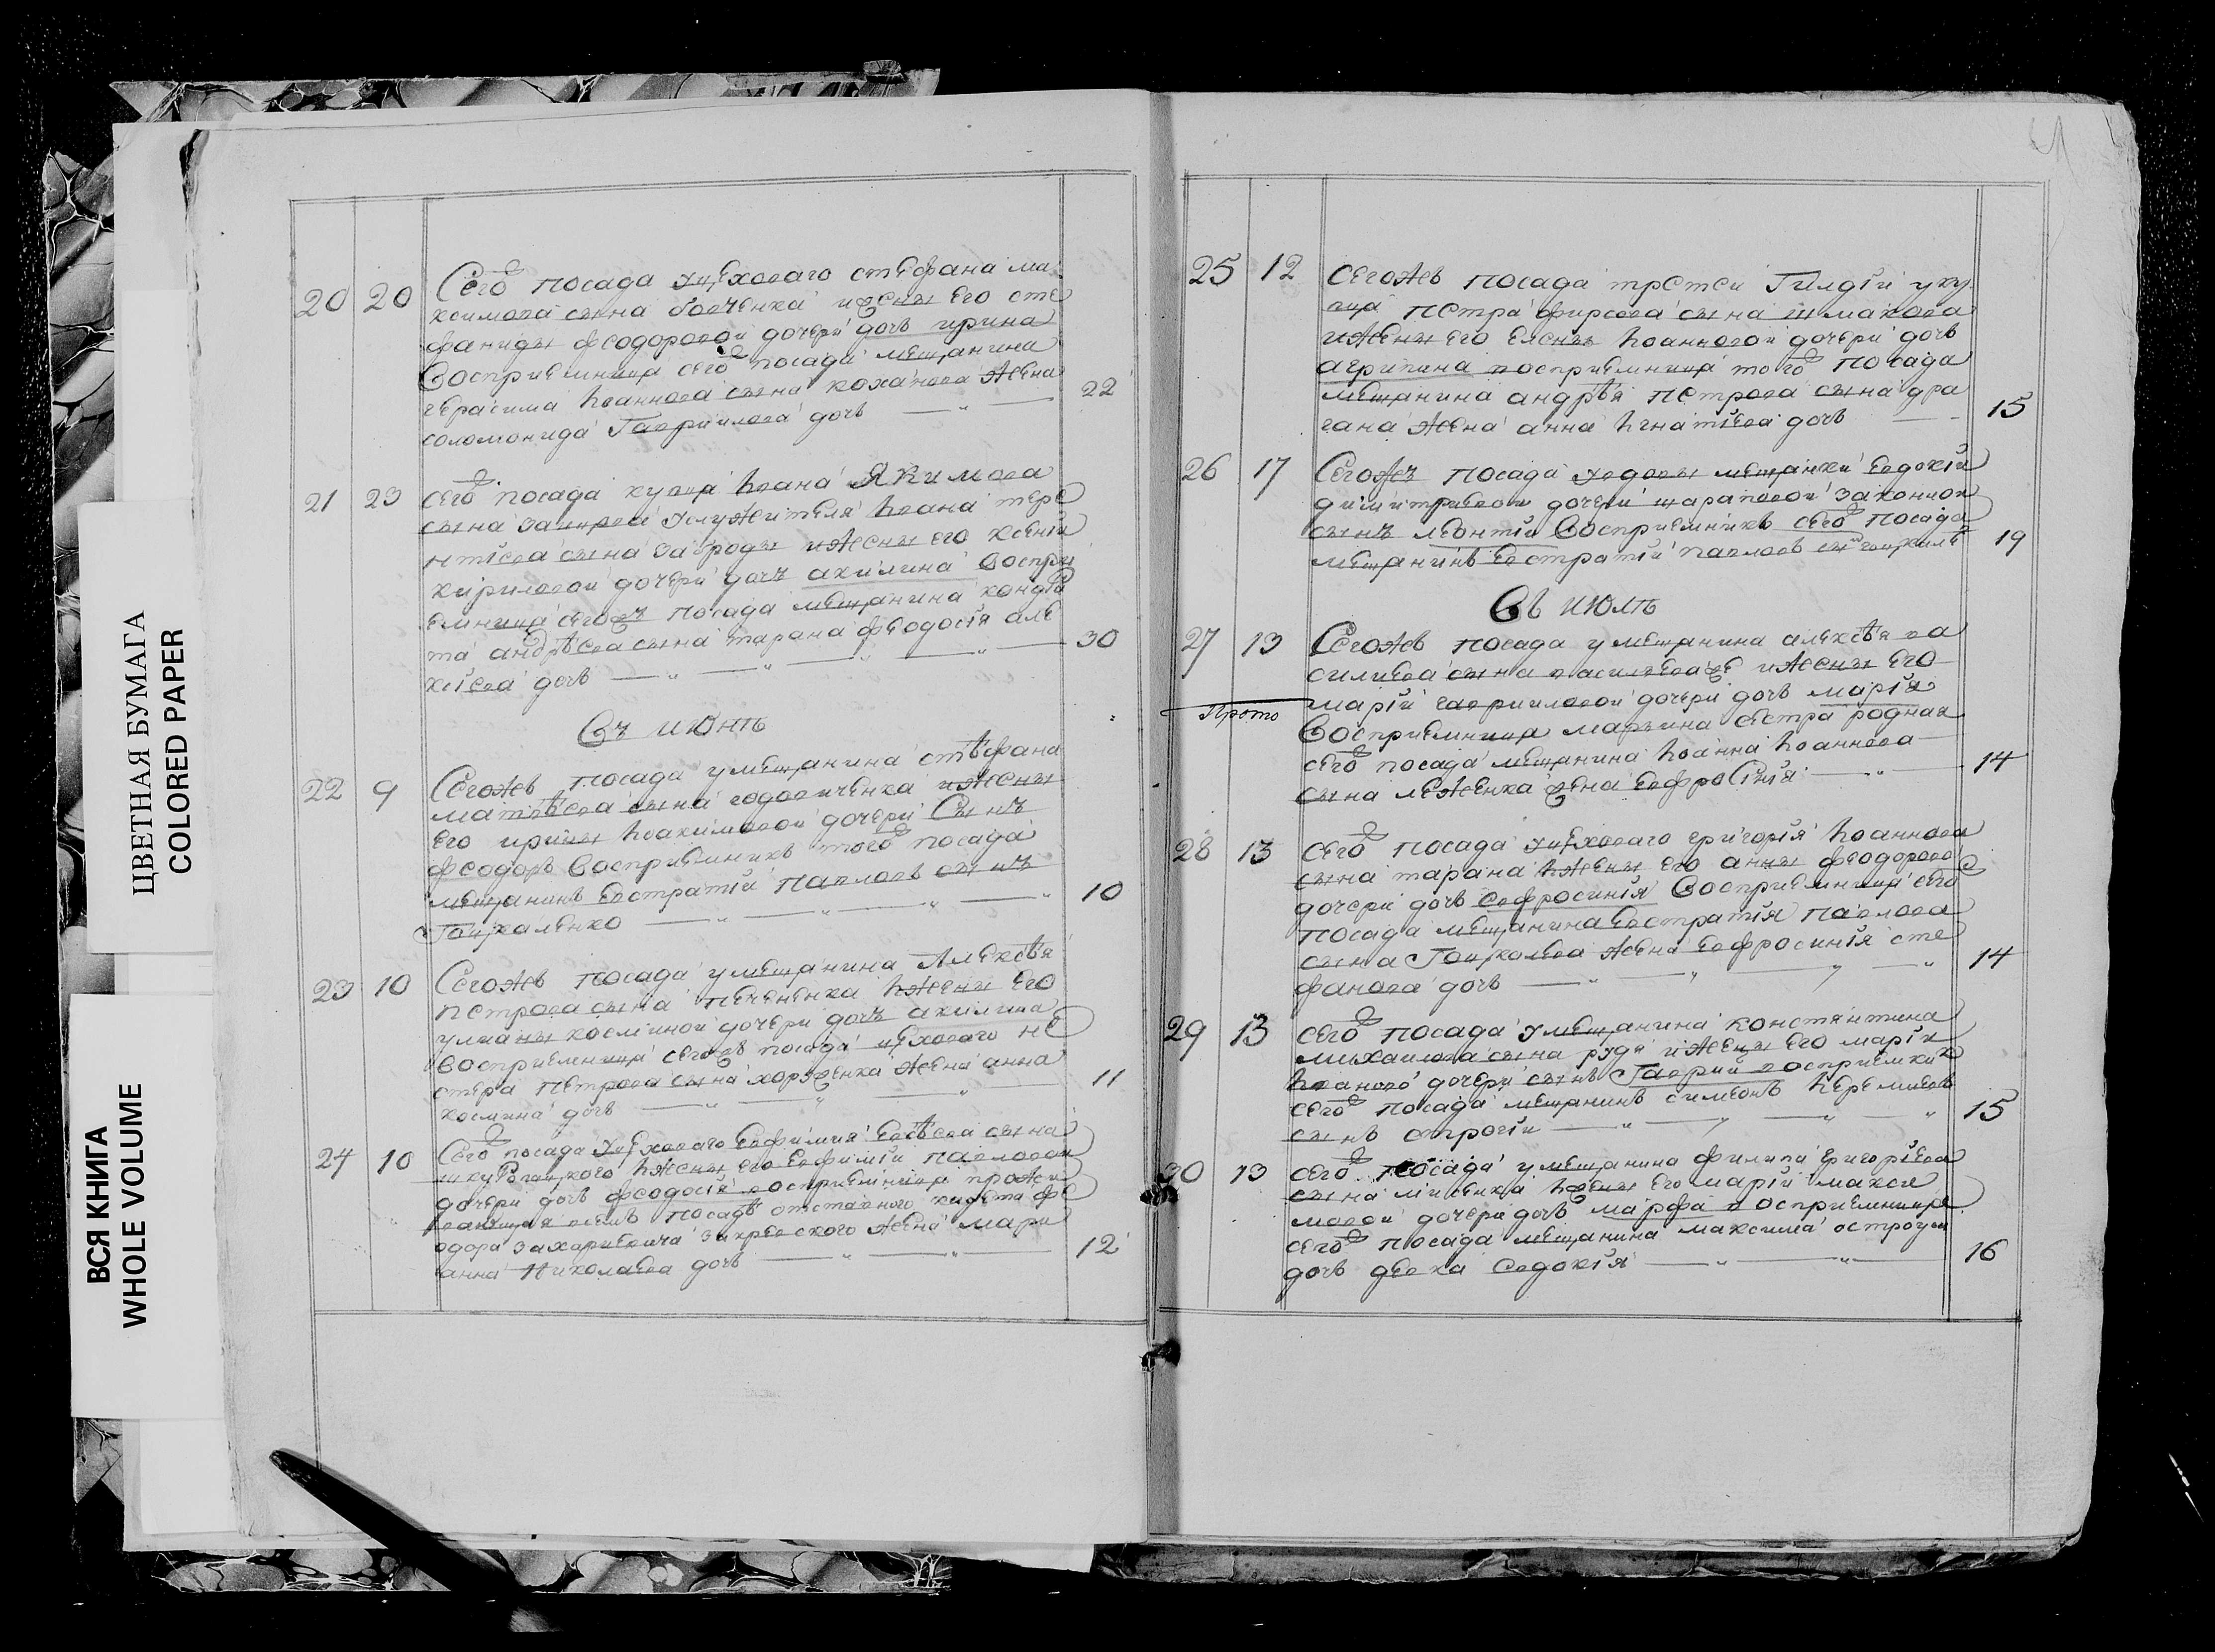 ЦВЕТНАЯ БУМАГА
COLORED PAPER
ВСЯ КНИГА
WHOLE VOLUME
20 20 Сего посада уцеховаго стефана ма
ксимова сына жены его сте
фаниды феодоровой дочери дочь ирина
Восприемница сего посада мещанина
герасима Іоаннова сына коханова жена
соломонида Гавриилова дочь 22
21 23 сего посада купца Іоана Якимова
сына услужителя Іоана тере
нтіева сына заброды ижены его ксеніи
кириловой дочери дочъ акилина Воспри
емница сегожъ посада мещанина кондра
та андрѣева сына тарана феодосія але
ксіева дочь 30
Въ июнѣ
22 9 Сегожь посада умещанина стѣфана
матвѣева сына ижены
его ирины Іоакимовой дочери Сынъ
феодоръ Восприемникъ того посада
мещанинъ Евстратій павловъ сынъ
Гоцкаленко 10
23 10 Сегожь посада умещанина Алексѣя
петрова сына печененка Іжены его
улианы косминой дочери дочъ акилина
Восприемница сегожъ посада цеховаго не
стера петрова сына жена анна
космина дочь 11
24 10 Сего посада уцеховаго Евфимия Евсѣева сына
Іжены его Евфиміи павловой
дочери дочь феодосія восприемница прожи
вающая всемъ посадѣ отставного кадета фе
одора захариевича закревского жена мари
анна Николаева дочь 12
25 12 сегожь посада третеи Гилдіи уку
пца петра фирсова сына шмакова
ижены его елены Іоанновой дочери дочь
агрипина восприемница того посада
мещанина андрѣя петрова сына дра
гана жена анна Ігнатіева дочь 15
26 17 Сегожъ посада удовы мещанки Евдокіи
димитриевой дочери шараповой законнои
сынъ леонтіи Восприемникъ сего посада
мещанинъ Евстратіи павловъ сынъ 19
Въ июлѣ
27 13 Сегожь посада умещанина алексѣя ва
силиева сына ижены его
маріи гаврииловой дочери дочь марія
Восприемница марьина сестра родная
сего посада мещанина Іоанна Іоаннова
сына леженка жена Евфросінія 14
28 13 сего посада уцеховаго григорія Іоаннова
сына тарана Іжены его анны феодоровой
дочери дочь Евфросинія Восприемница сего
посада мещанина Евстратія павлова
сына Гоцкалева жена Евфросинія сте
фанова дочь 14
29 13 сего посада умещанина константина
михаилова сына руда ижены его маріи
Іоановой дочери сынъ Гавріил восприемник
сего посада мещанинъ симеонъ Іеремиевъ
сынъ 15
30 13 сего посада умещанина филипа григоріева
сына лисенка Іжены его маріи макси
мовой дочери дочь марфа восприемница
сего посада мещанина максима
дочь девка Евдокія 16